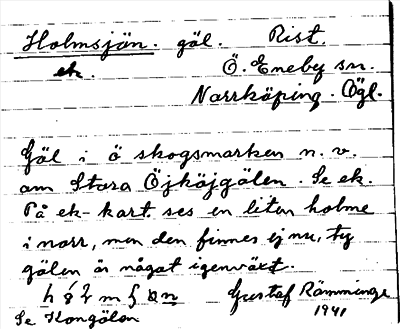 Holmsjön. göl. Rist.
ek. Ö. Eneby sn.
Norrköping. Ögl.
Göl i ö skogsmarken n. v.
om Stora Öjköjgölen. Se ek.
På ek-kart. ses en liten holme
i norr, men den finnes ej nu, ty
gölen är något igenväxt.
Gustaf Rämminge
Se Kongölen 1941